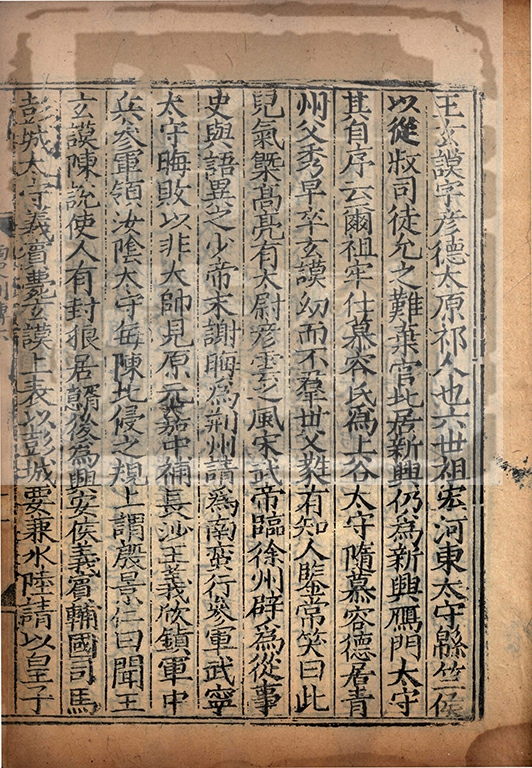 王玄謨字彥德太原祁人也六世祖宏河東太守緜竺侯
以從叔司徒允之難棄官北居新興仍爲新興鴈門太守
其自序云爾祖牢仕慕容氏爲上谷太守隨慕容德居青
州父秀早卒玄謨幼而不羣世父蕤有知人鑒常笑曰此
兒氣槩高亮有太尉彥雲之風宋武帝臨徐州辟爲從事
史與語異之少帝末謝晦爲荆州請爲南蛮行參軍武寧
太守晦敗以非大帥見原元嘉中補長沙王義欣鎮軍中
兵參軍領汝陰太守每陳北侵之規上謂殷景仁曰聞王
玄謨陳說使人有封狼居胥意後爲興安侯義賓輔國司馬
彭城太守義賓薨玄謨上表以彭城要兼水陸請以皇子